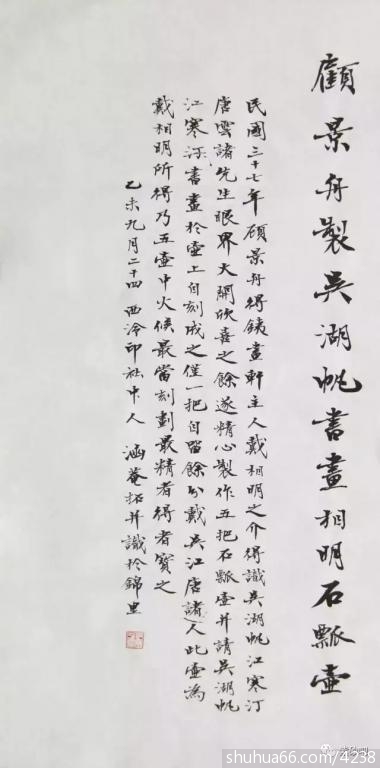 顧景舟製吳湖帆書畫相明石瓢壺
民國三十七年顧景舟得鐵畫軒主人戴相明之介得識吳湖帆江寒汀
唐雲諸先生眼界大開欣喜之餘遂精心製作五把石瓢壺并請吳湖帆
江寒汀書畫於壺上自刻成之僅一把自留餘分戴吳江唐諸人此壺為
戴相明所得乃五壺中火候最當刻劃最精者得者寶之
乙未九月二十四西泠印社中人涵菴拓并識於錦里
shuhua66.com/4238